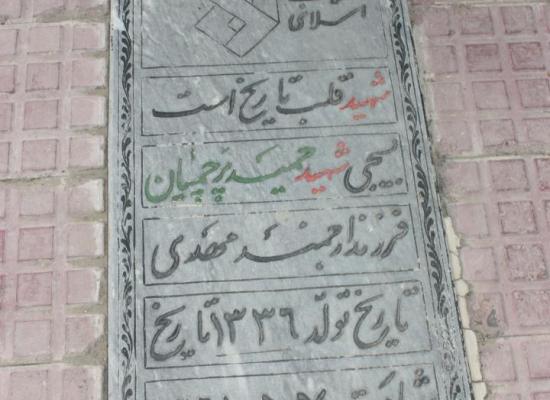 اسلامی
شهید قلب تاریخ است
بسیجی شهید حمید پرچمیان
فرزند ارجمند مهدی
تاریخ تولد ۱۳۳۶ تاریخ